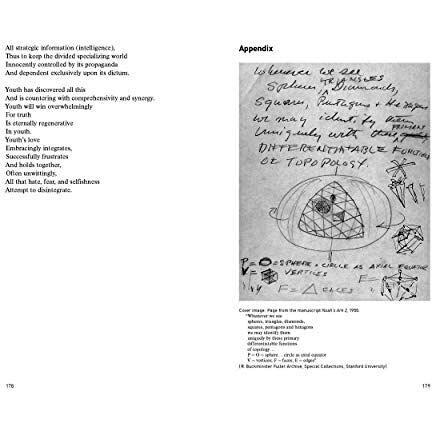 All strategic information (intelligence),
Thus to keep the divided specializing world
Innocently controlled by its propaganda
And dependent exclusively upon its dictum.
Youth has discovered all this
And is countering with comprehensivity and synergy.
Youth will win overwhelmingly
For truth
Is eternally regenerative
In youth.
Youth's love
Embracingly integrates,
Successfully frustrates
And holds together,
Often unwittingly,
All that hate, fear, and selfishness
Attempt to disintegrate.
178
Appendix
Whenever we see
Spheres, TRIANGLES Diamonds,
Squares, Pentagons + Hexagons
we may identify them
Uniquely with these PRIMARY
DIFFERENTIABLE FUNCTIONS
OF TOPOLOGY.
P = O = SPHERE CIRCLE AS AXIAL EQUATOR
V = VERTICES
F = FACES
Cover image: Page from the manuscript Noah's Ark 2, 1950.
"Whenever we see
spheres, triangles, diamonds,
squares, pentagons and hexagons
we may identify them
uniquely by these primary
differentiable functions
of topology ...
P = O = sphere circle as axial equator
V = vertices, F = faces, E = edges"
(R. Buckminster Fuller Archive, Special Collections, Stanford University)
179